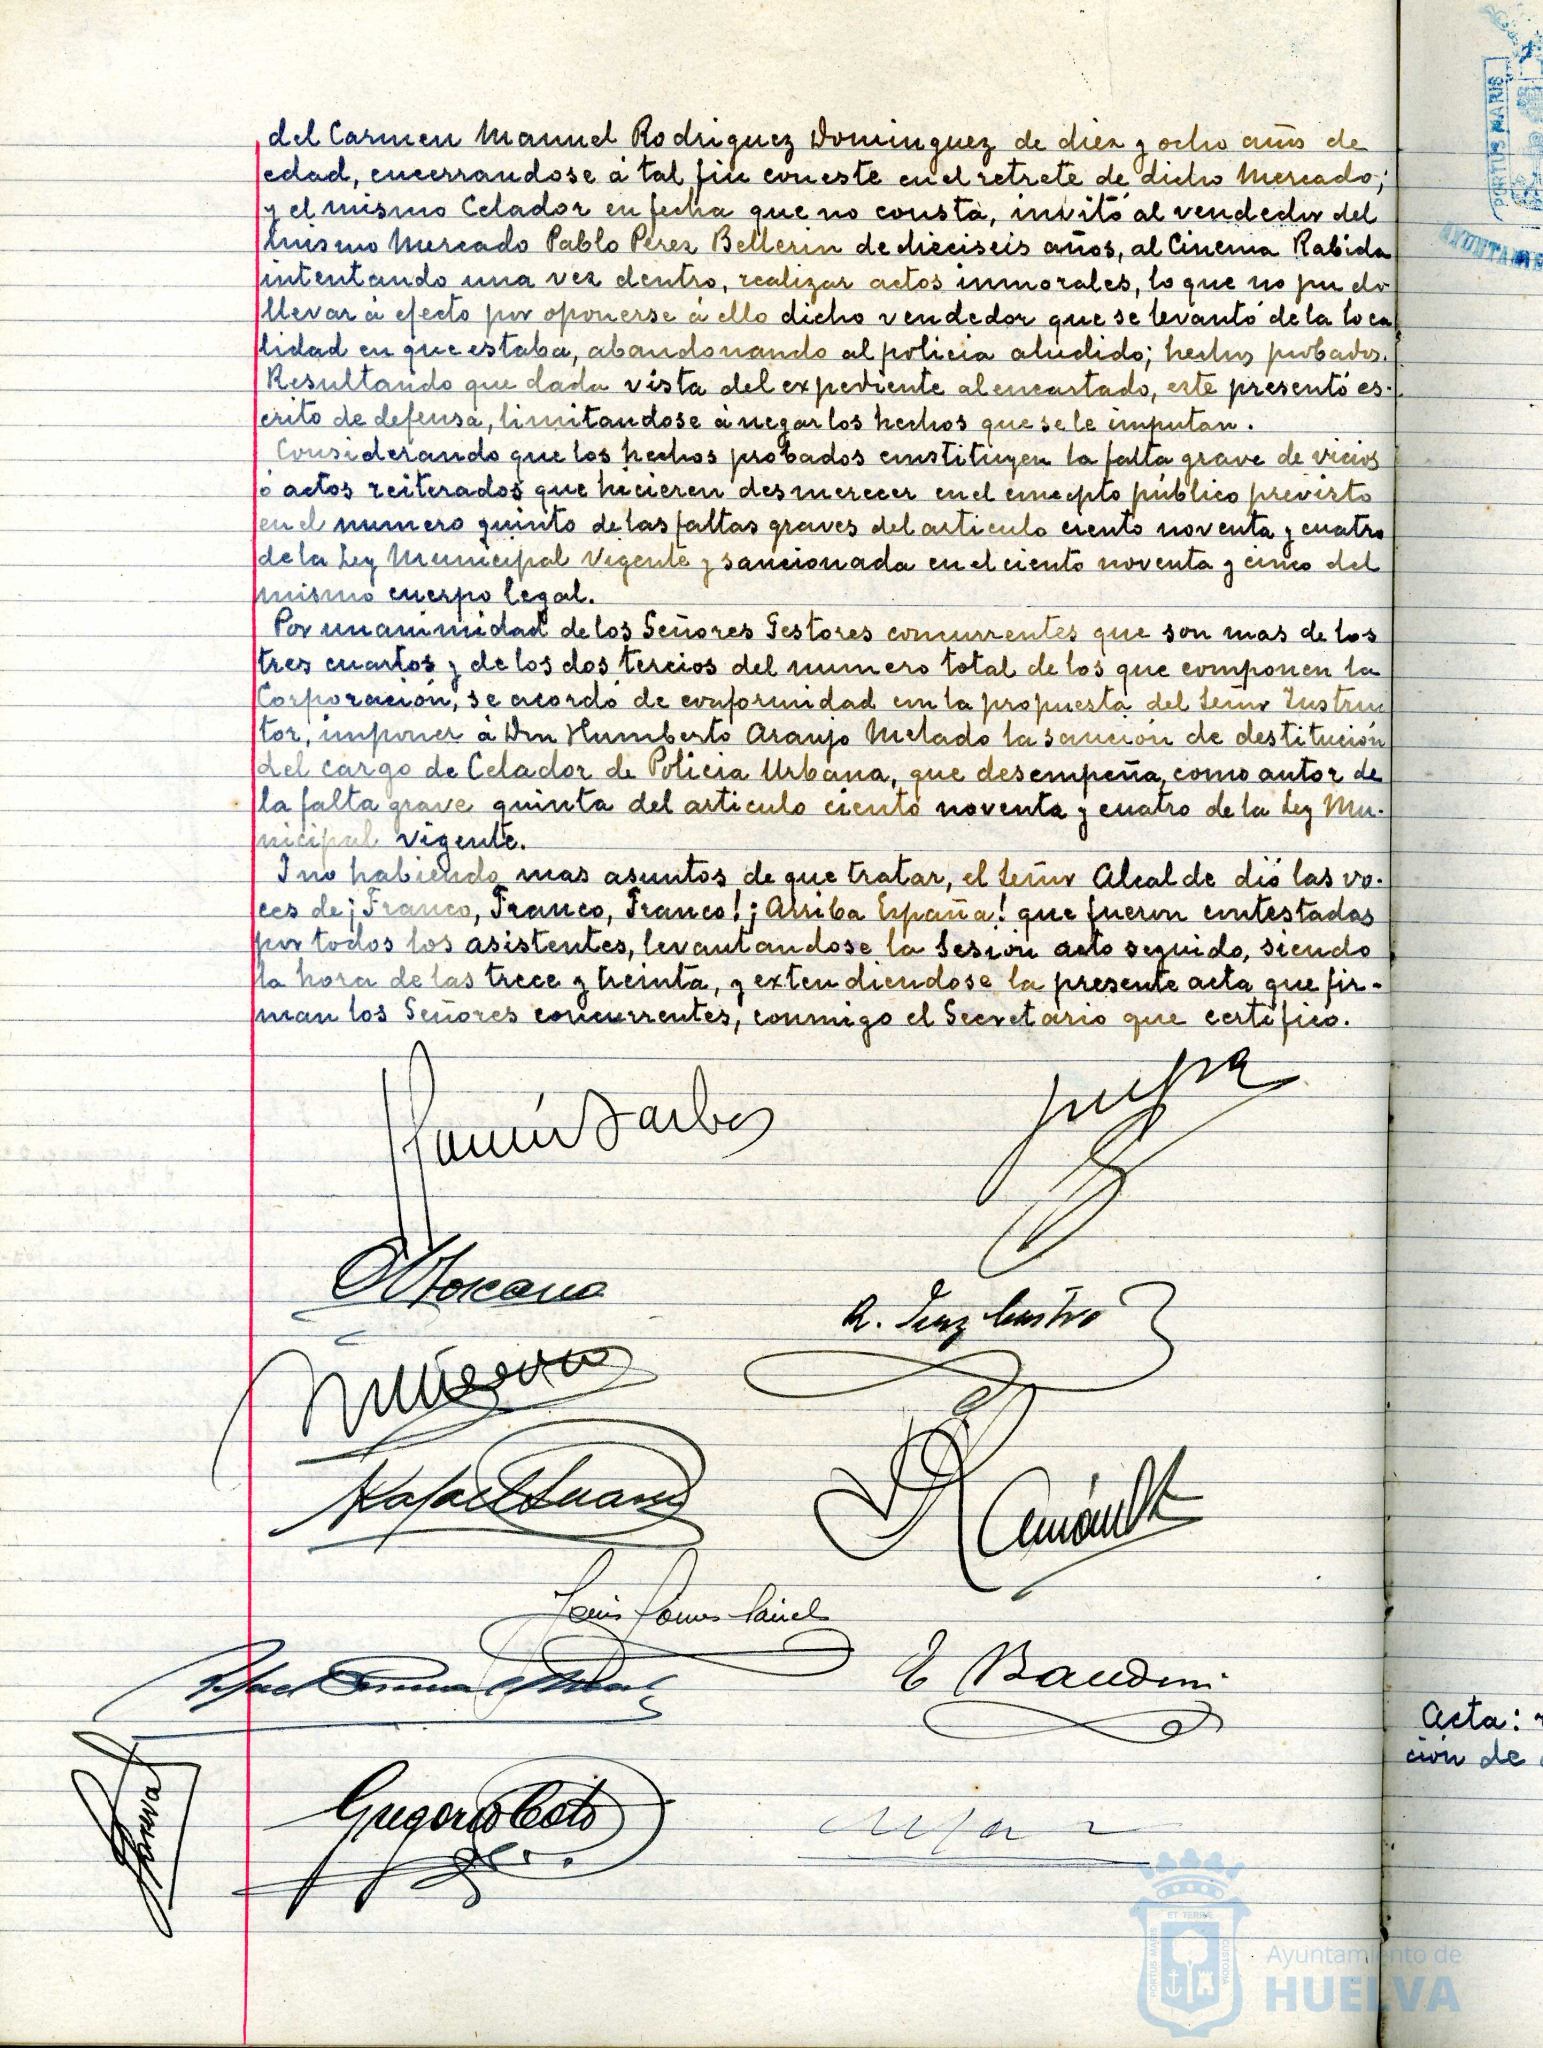 del Carmen Manuel Rodriguez Dominguez de diez y ocho años de
edad, encerrandose á tal fin con este en el retrete de dicho Mercado;
y el mismo Celador en fecha que no consta, invitó al vendedor del
mismo Mercado Pablo Perez Bellerin de dieciseis años, al Cinema Rabida
intentando una vez dentro, realizar actos inmorales, lo que no pudo
llevar á efecto por oponerse á ello dicho vendedor que se levantó de la loca
lidad en que estaba, abandonando al policia aludido; hechos probados.
Resultando que dada vista del expediente al encartado, este presentó es-
crito de defensa, limitandose á negar los hechos que se le imputan.
Considerando que los hechos probados constituyen la falta grave de vicios
ó actos reiterados que hicieren desmerecer en el concepto público previsto
en el numero quinto de las faltas graves del articulo ciento noventa y cuatro
de la Ley Municipal Vigente y sancionada en el ciento noventa y cinco del
mismo cuerpo legal.
Por unanimidad de los Señores Gestores concurrentes que son mas de los
tres cuartos y de los dos tercios del numero total de los que componen la
Corporación, se acordó de conformidad con la propuesta del Señor Instruc
tor, imponer á Don Humberto Araujo Melado la sanción de destitución
del cargo de Celador de Policia Urbana, que desempeña, como autor de
la falta grave quinta del articulo ciento noventa y cuatro de la Ley Mu-
nicipal vigente.
I no habiendo mas asuntos de que tratar, el Señor Alcalde dió las vo-
ces de ¡Franco, Franco, Franco! ¡Arriba España! que fueron contestadas
por todos los asistentes, levantandose la Sesión acto seguido, siendo
la hora de las trece y treinta, y extendiendose la presente acta que fir-
man los Señores concurrentes, conmigo el Secretario que certifico.
R. Diaz Castro
Rafael Suarez
E Baudini
Gregorio Coto
Acta:
ción de
PORTUS MARIS
ET TERRÆ
PORTUS MARIS
CUSTODIA
Ayuntamiento de
HUELVA